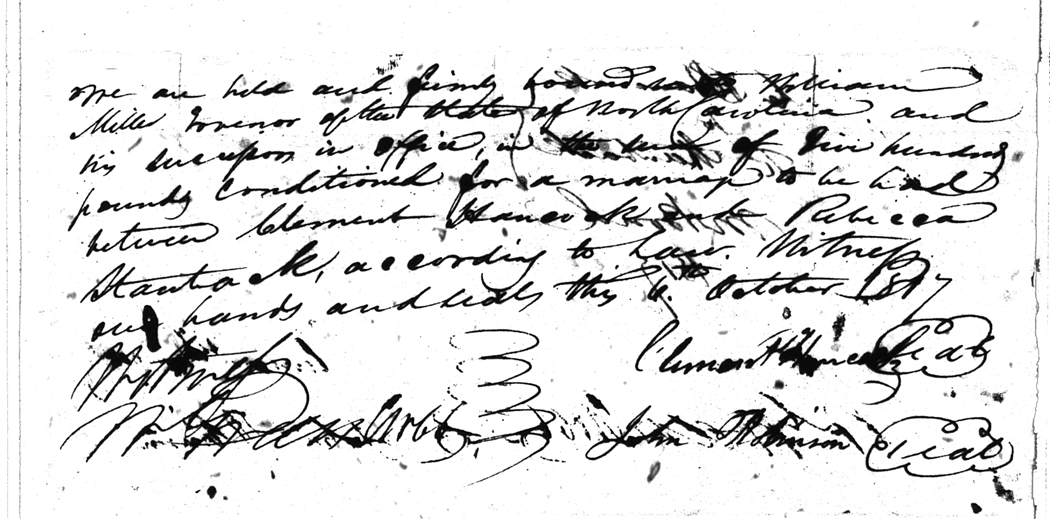 We are held and firmly bound unto William
Miller Govenor of the State of North Carolina and
his successors in office, in the sum of Five hundred
pounds Conditioned for a marriage to be had
between Clement Hancock and Rebecca
Stantack, according to Law. Witness
our hands and seals this 6th October 1817
Clement Hancock Seal
John Robinson Seal